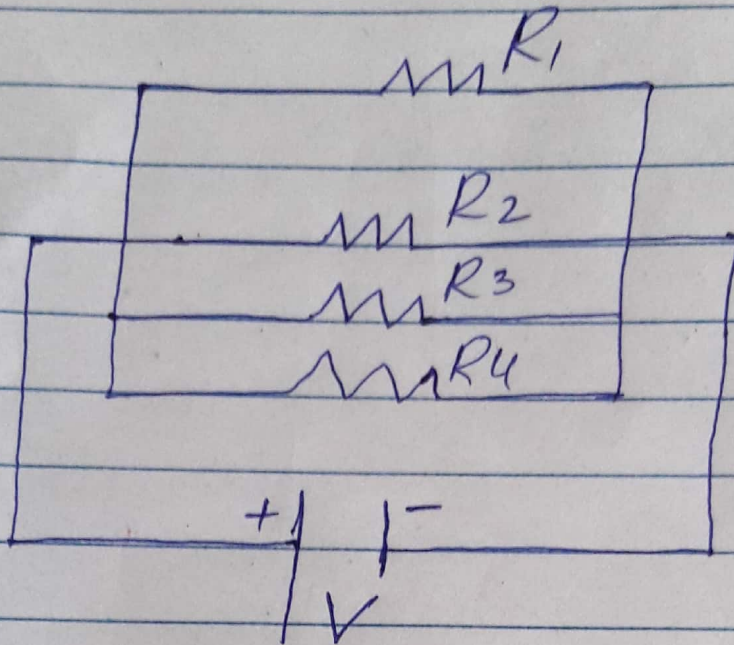 R1
R2
R3
R4
+ -
V